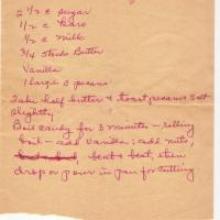 2 1/2 c sugar
1/2 c Karo
1/2 c milk
3/4 stick Butter
Vanilla
1 large c pecans
Take half butter & toast pecans & salt
slightly
Boil candy for 3 minutes - rolling
boil - add vanilla; add nuts,
beat & beat, then
drop or pour in pan for cutting